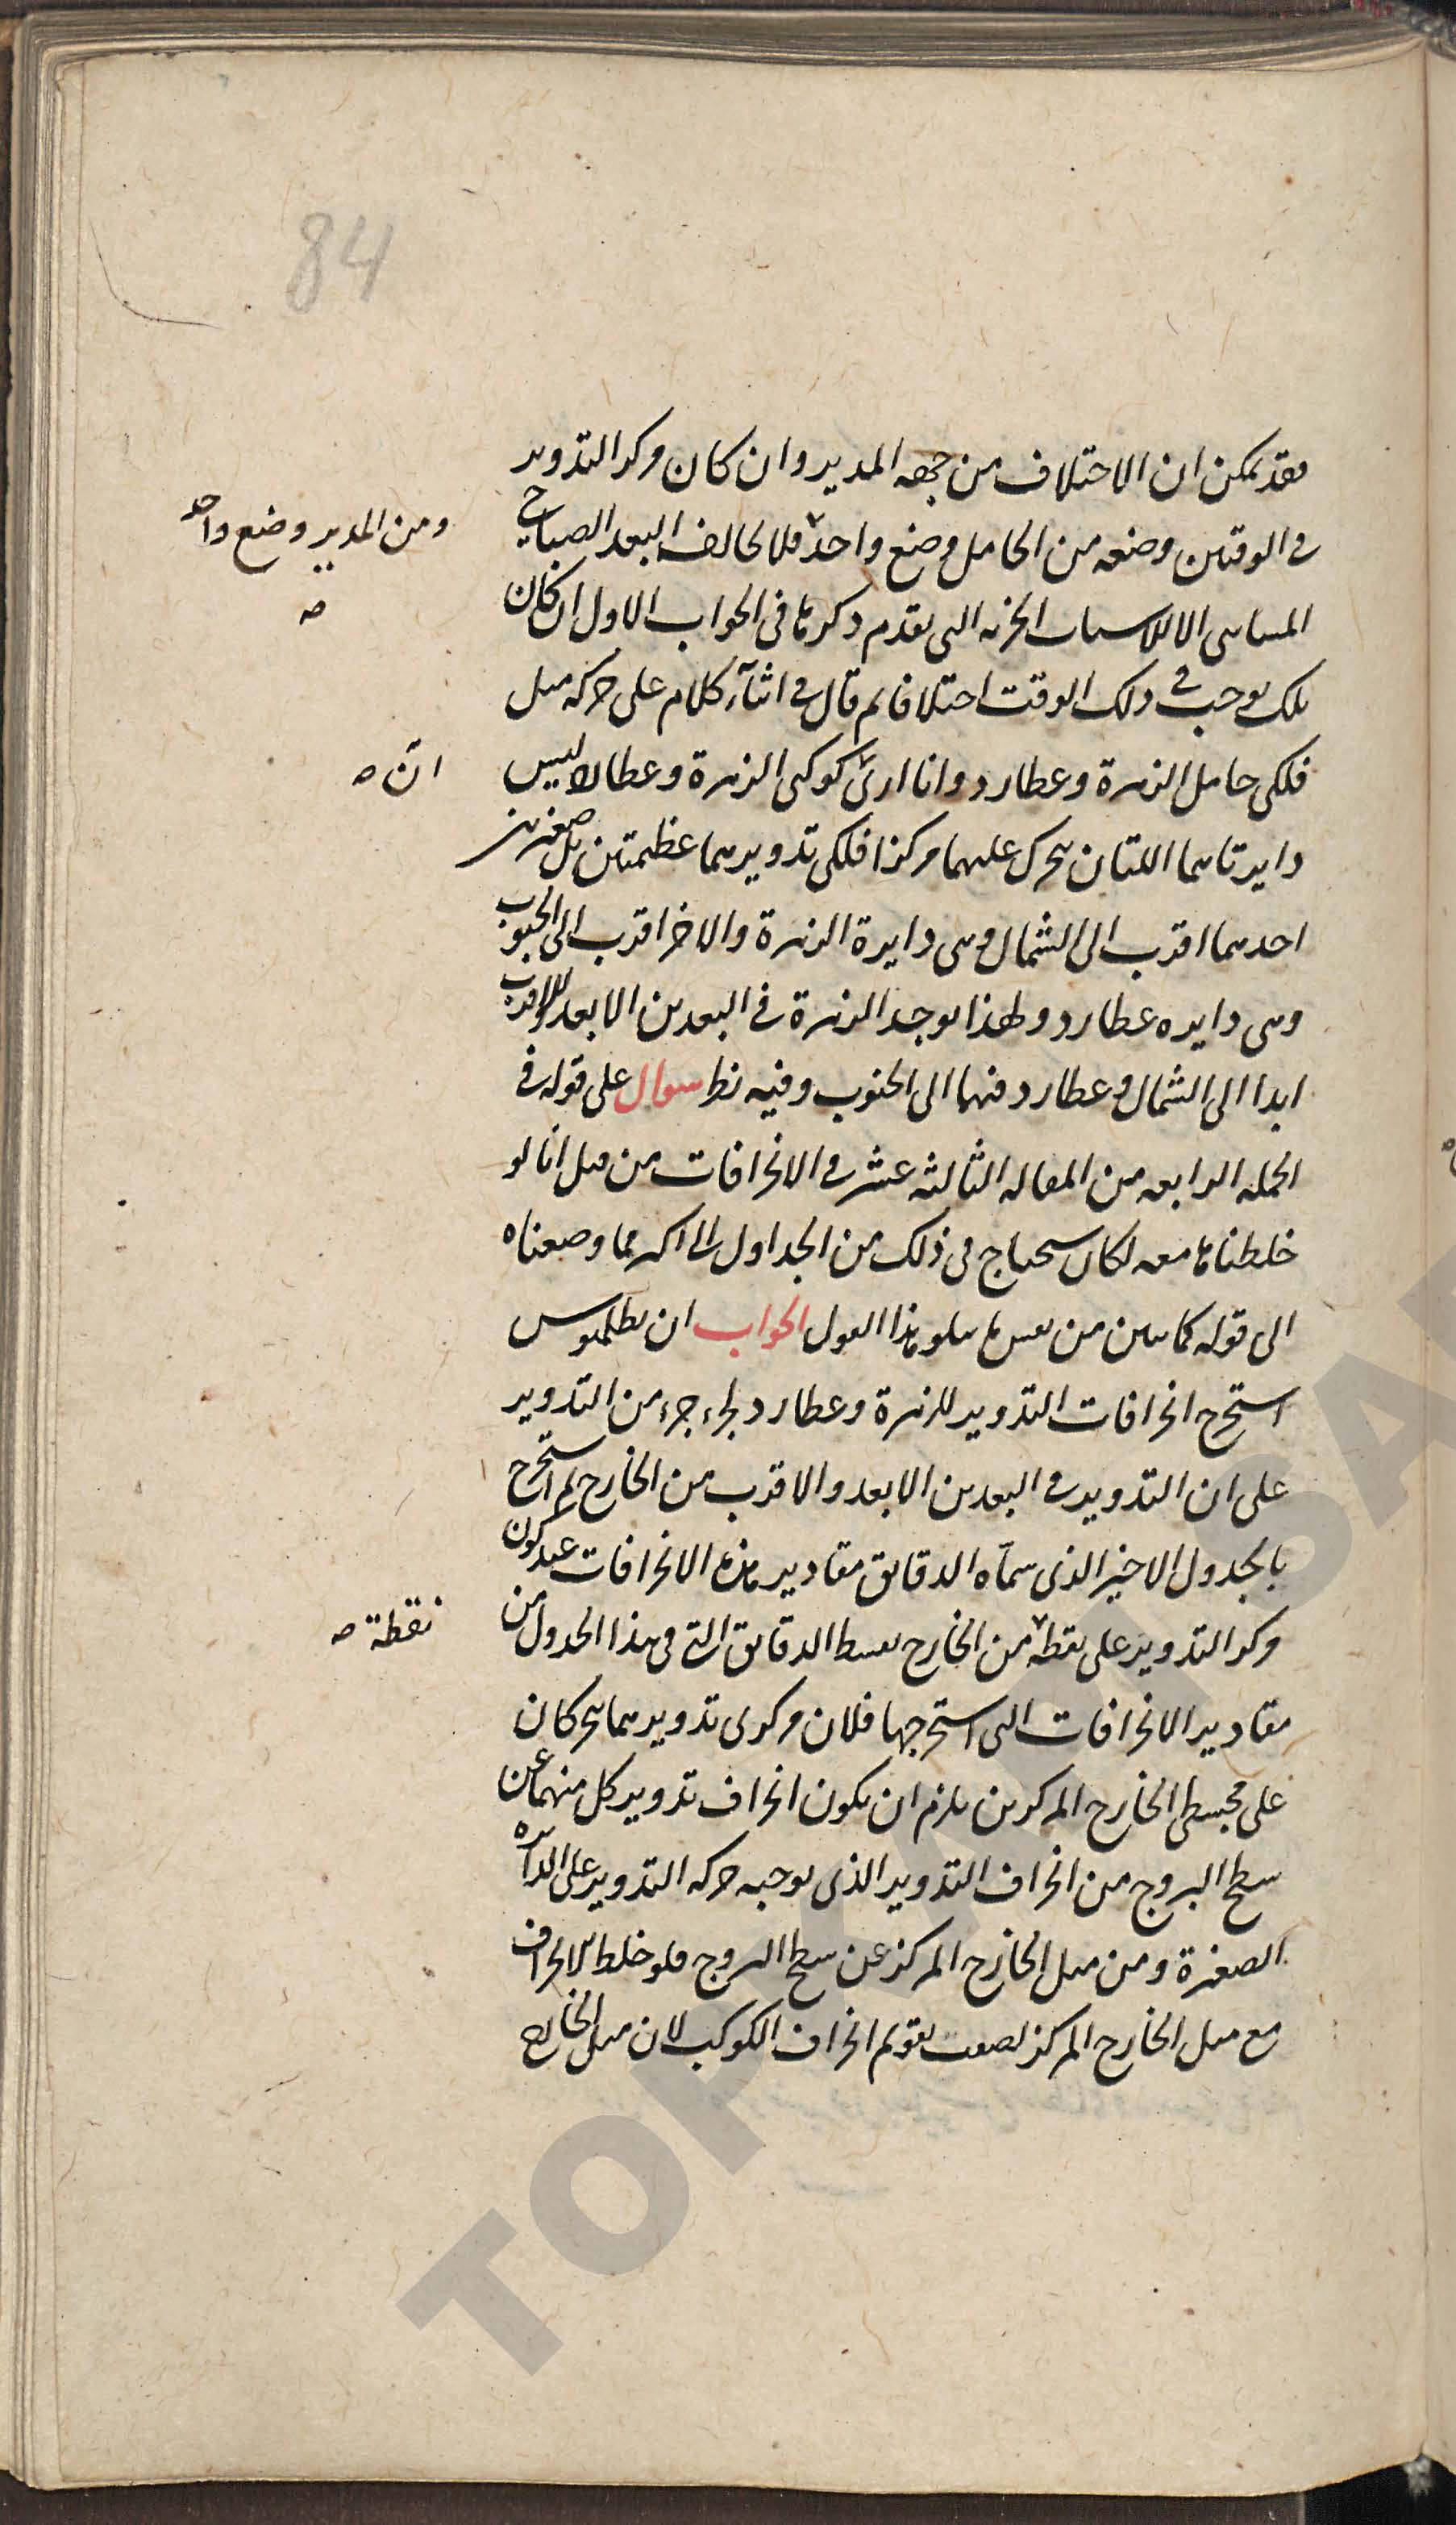 84
فقد يمكن ان الاختلاف من جهه المدير وان كان مركز التدوير
فى الوقتين وضعه من الحامل وضع واحد فلا يخالف البعد الصباحى
ومن المدير وضع واحد صه
المسائى الا للاسباب الجزئيه التى تقدم ذكرها فى الجواب الاول ان كان
تلك يوجب فى ذلك الوقت اختلافا ثم قال فى اثناء كلام على حركه ميل
فلكى حامل الزهرة وعطارد وانا ارى كوكبى الزهرة وعطارد ليس
ان صه
دايرتاهما اللتان يتحرك عليهما مركزا فلكى تدويرهما عظيمتين بل صغيرتين
احدهما اقرب الى الشمال وهى دايرة الزهرة والاخر اقرب الى الجنوب
وهى دايره عطارد ولهذا يوجد الزهرة فى البعدين الابعد والاقرب
ابدا الى الشمال وعطارد فيهما الى الجنوب وفيه نظر سوال على قوله فى
الجمله الرابعه من المقاله الثالثه عشر فى الانحرافات من قبل انا لو
خلطناها معه لكان سيحتاج فى ذلك من الجداول الى اكثر مما وضعناه
الى قوله كما يتبين من نفس ما يتلو هذا القول الجواب ان بطلميوس
استخرج انحرافات التدوير للزهرة وعطارد لجزء جزء من التدوير
على ان التدوير فى البعدين الابعد والاقرب من الخارج ثم استخرج
بالجدول الاخير الذى سماه الدقايق مقادير هذه الانحرافات عند كون
مركز التدوير على نقطه من الخارج بقسط الدقايق التى فى هذا الجدول من
نقطة صه
مقادير الانحرافات التى استخرجها فلان مركزى تدويرهما يتحركان
على محيطى الخارج المركزين يلزم ان يكون انحراف تدوير كل منهما عن
سطح البروج من انحراف التدوير الذى يوجبه حركه التدوير على الدايره
الصغيرة ومن ميل الخارج المركز عن سطح البروج فلو خلط الانحراف
مع ميل الخارج المركز لصعب تقويم انحراف الكوكب لان ميل الخارج